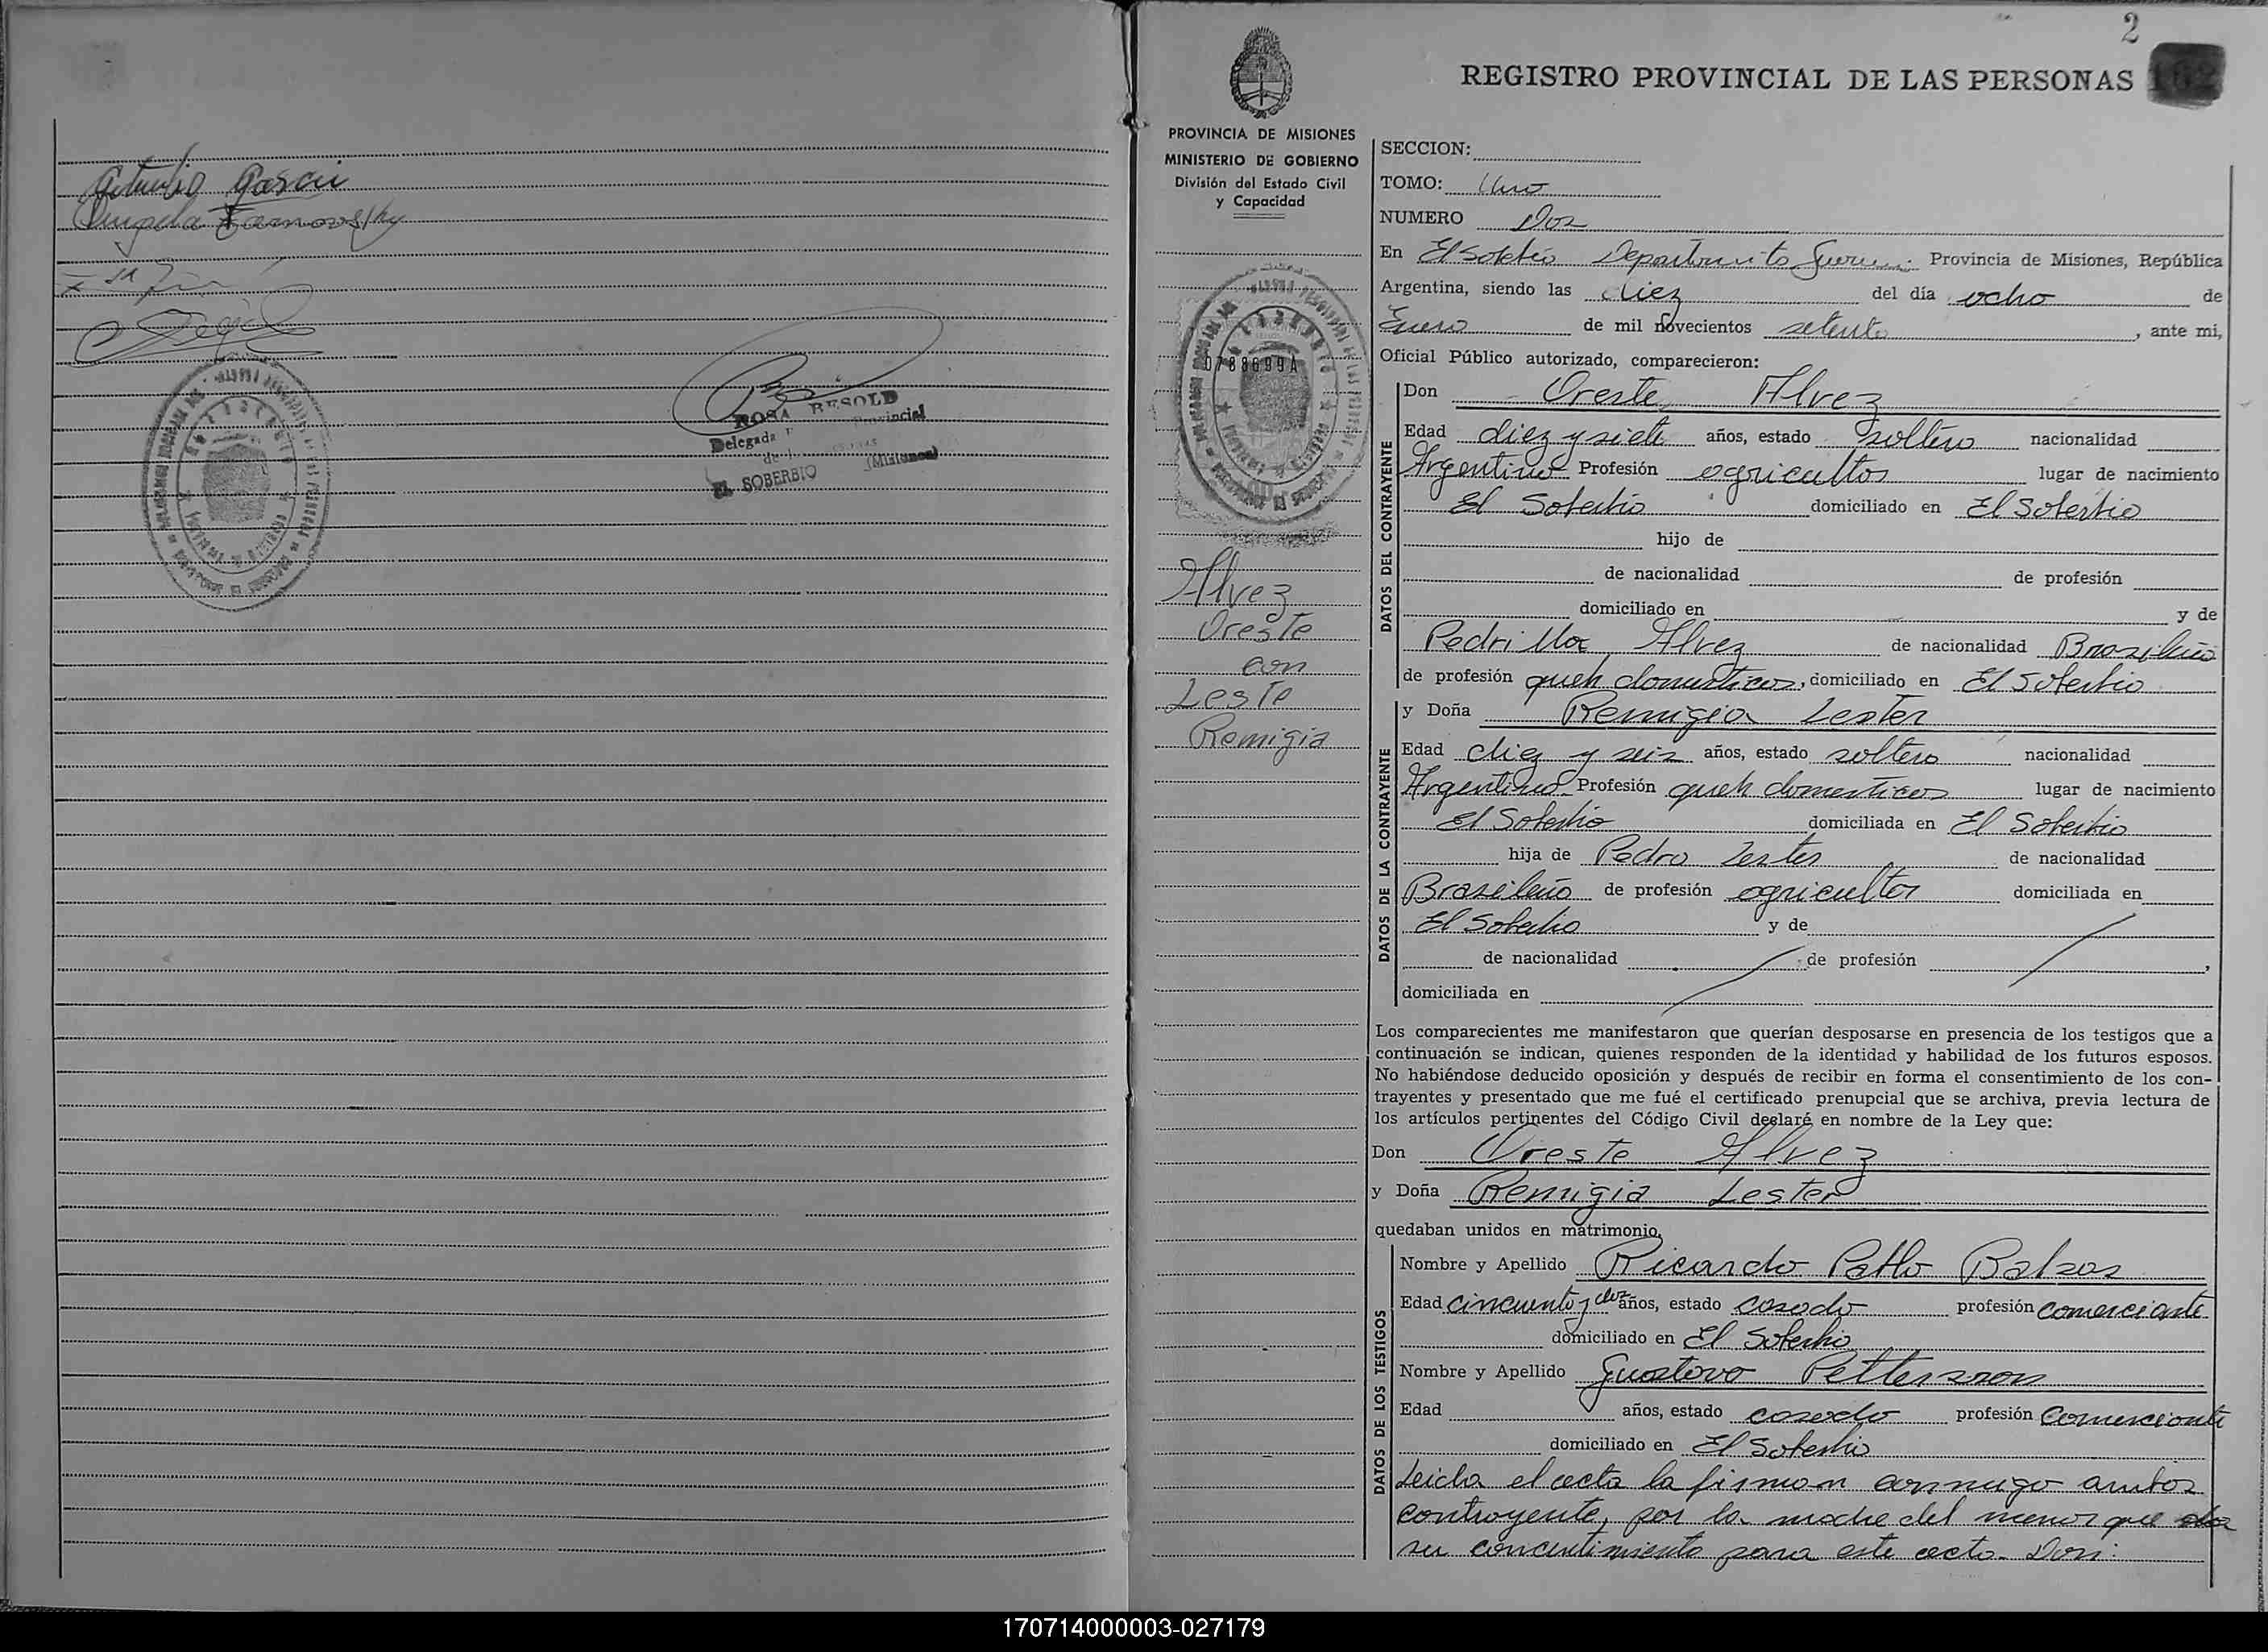 Angela Tarnowsky
ROSA BESOLD
Delegada Provincial
de
(Misiones)
EL SOBERBIO
2
REGISTRO PROVINCIAL DE LAS PERSONAS
PROVINCIA DE MISIONES
MINISTERIO DE GOBIERNO
División del Estado Civil
y Capacidad
0788699A
Alvez
Oreste
con
Leste
Remigia
SECCION:
TOMO: Uno
NUMERO Dos
En El Soberbio Departamento Guarani Provincia de Misiones, República
Argentina, siendo las diez del día ocho de
Enero de mil novecientos setenta, ante mi,
Oficial Público autorizado, comparecieron:
DATOS DEL CONTRAYENTE
Don Oreste Alvez
Edad diez y siete años, estado soltero nacionalidad
Argentino Profesión agricultor lugar de nacimiento
El Soberbio domiciliado en El Soberbio
hijo de
de nacionalidad de profesión
domiciliado en y de
Pedrilla Alvez de nacionalidad Brasileña
de profesión queh domesticos, domiciliado en El Soberbio
DATOS DE LA CONTRAYENTE
y Doña Remigia Lester
Edad diez y seis años, estado soltera nacionalidad
Argentina Profesión queh domesticos lugar de nacimiento
El Soberbio domiciliada en El Soberbio
hija de Pedro Lester de nacionalidad
Brasileño de profesión agricultor domiciliada en
El Soberbio y de
de nacionalidad de profesión ,
domiciliada en
Los comparecientes me manifestaron que querían desposarse en presencia de los testigos que a
continuación se indican, quienes responden de la identidad y habilidad de los futuros esposos.
No habiéndose deducido oposición y después de recibir en forma el consentimiento de los con-
trayentes y presentado que me fué el certificado prenupcial que se archiva, previa lectura de
los artículos pertinentes del Código Civil declaré en nombre de la Ley que:
Don Oreste Alvez
y Doña Remigia Lester
quedaban unidos en matrimonio.
DATOS DE LOS TESTIGOS
Nombre y Apellido Ricardo Pablo Balzar
Edad cincuenta y dos años, estado casado profesión comerciante
domiciliado en El Soberbio
Nombre y Apellido Gustavo Pettersson
Edad años, estado casado profesión Comerciante
domiciliado en El Soberbio
Leida el acta la firman conmigo ambos
contrayente, por la madre del menor que da
su concentimiento para este acto. Don:
170714000003-027179